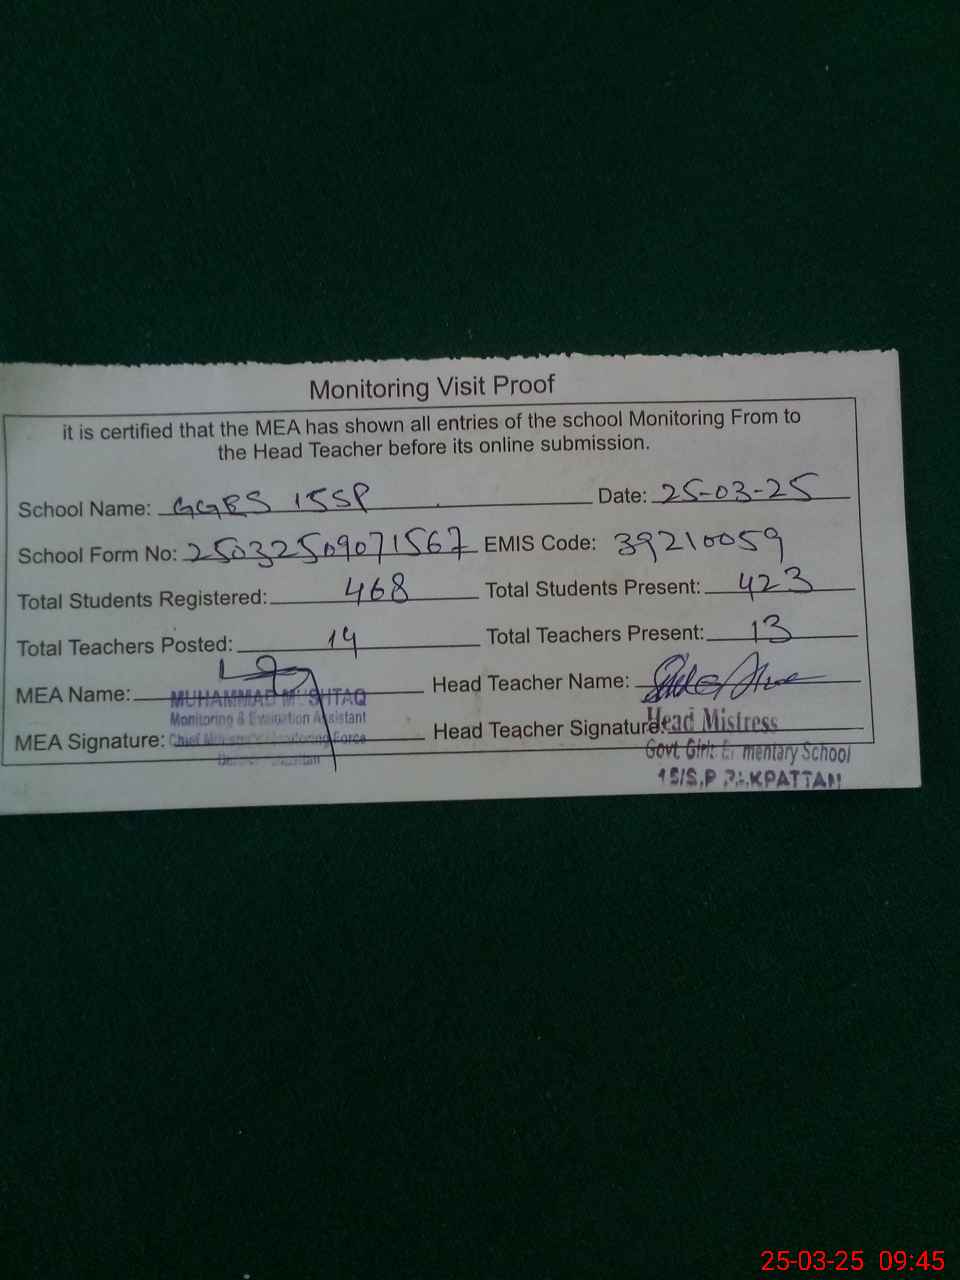 Monitoring Visit Proof
it is certified that the MEA has shown all entries of the school Monitoring From to
the Head Teacher before its online submission.
School Name: GGES 15SP Date: 25-03-25
School Form No: 25032509071567 EMIS Code: 39210059
Total Students Registered: 468 Total Students Present: 423
Total Teachers Posted: 14 Total Teachers Present: 13
MEA Name: MUHAMMAD MUSHTAQ Head Teacher Name:
Monitoring & Evaluation Assistant
MEA Signature: Chief Minister's Monitoring Force Head Teacher Signature: Head Mistress
Govt Girls Elementary School
15/S.P PAKPATTAN
25-03-25 09:45